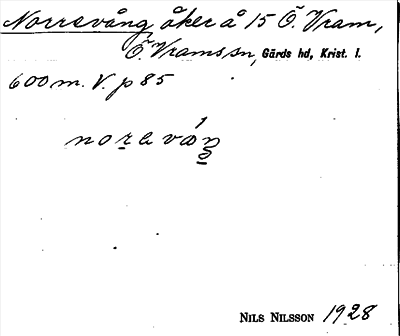 Norrevång åker å 15 Ö. Vram,
Ö. Vrams sn, Gärds hd, Krist. l.
600 m. V. p 85
NILS NILSSON 1928